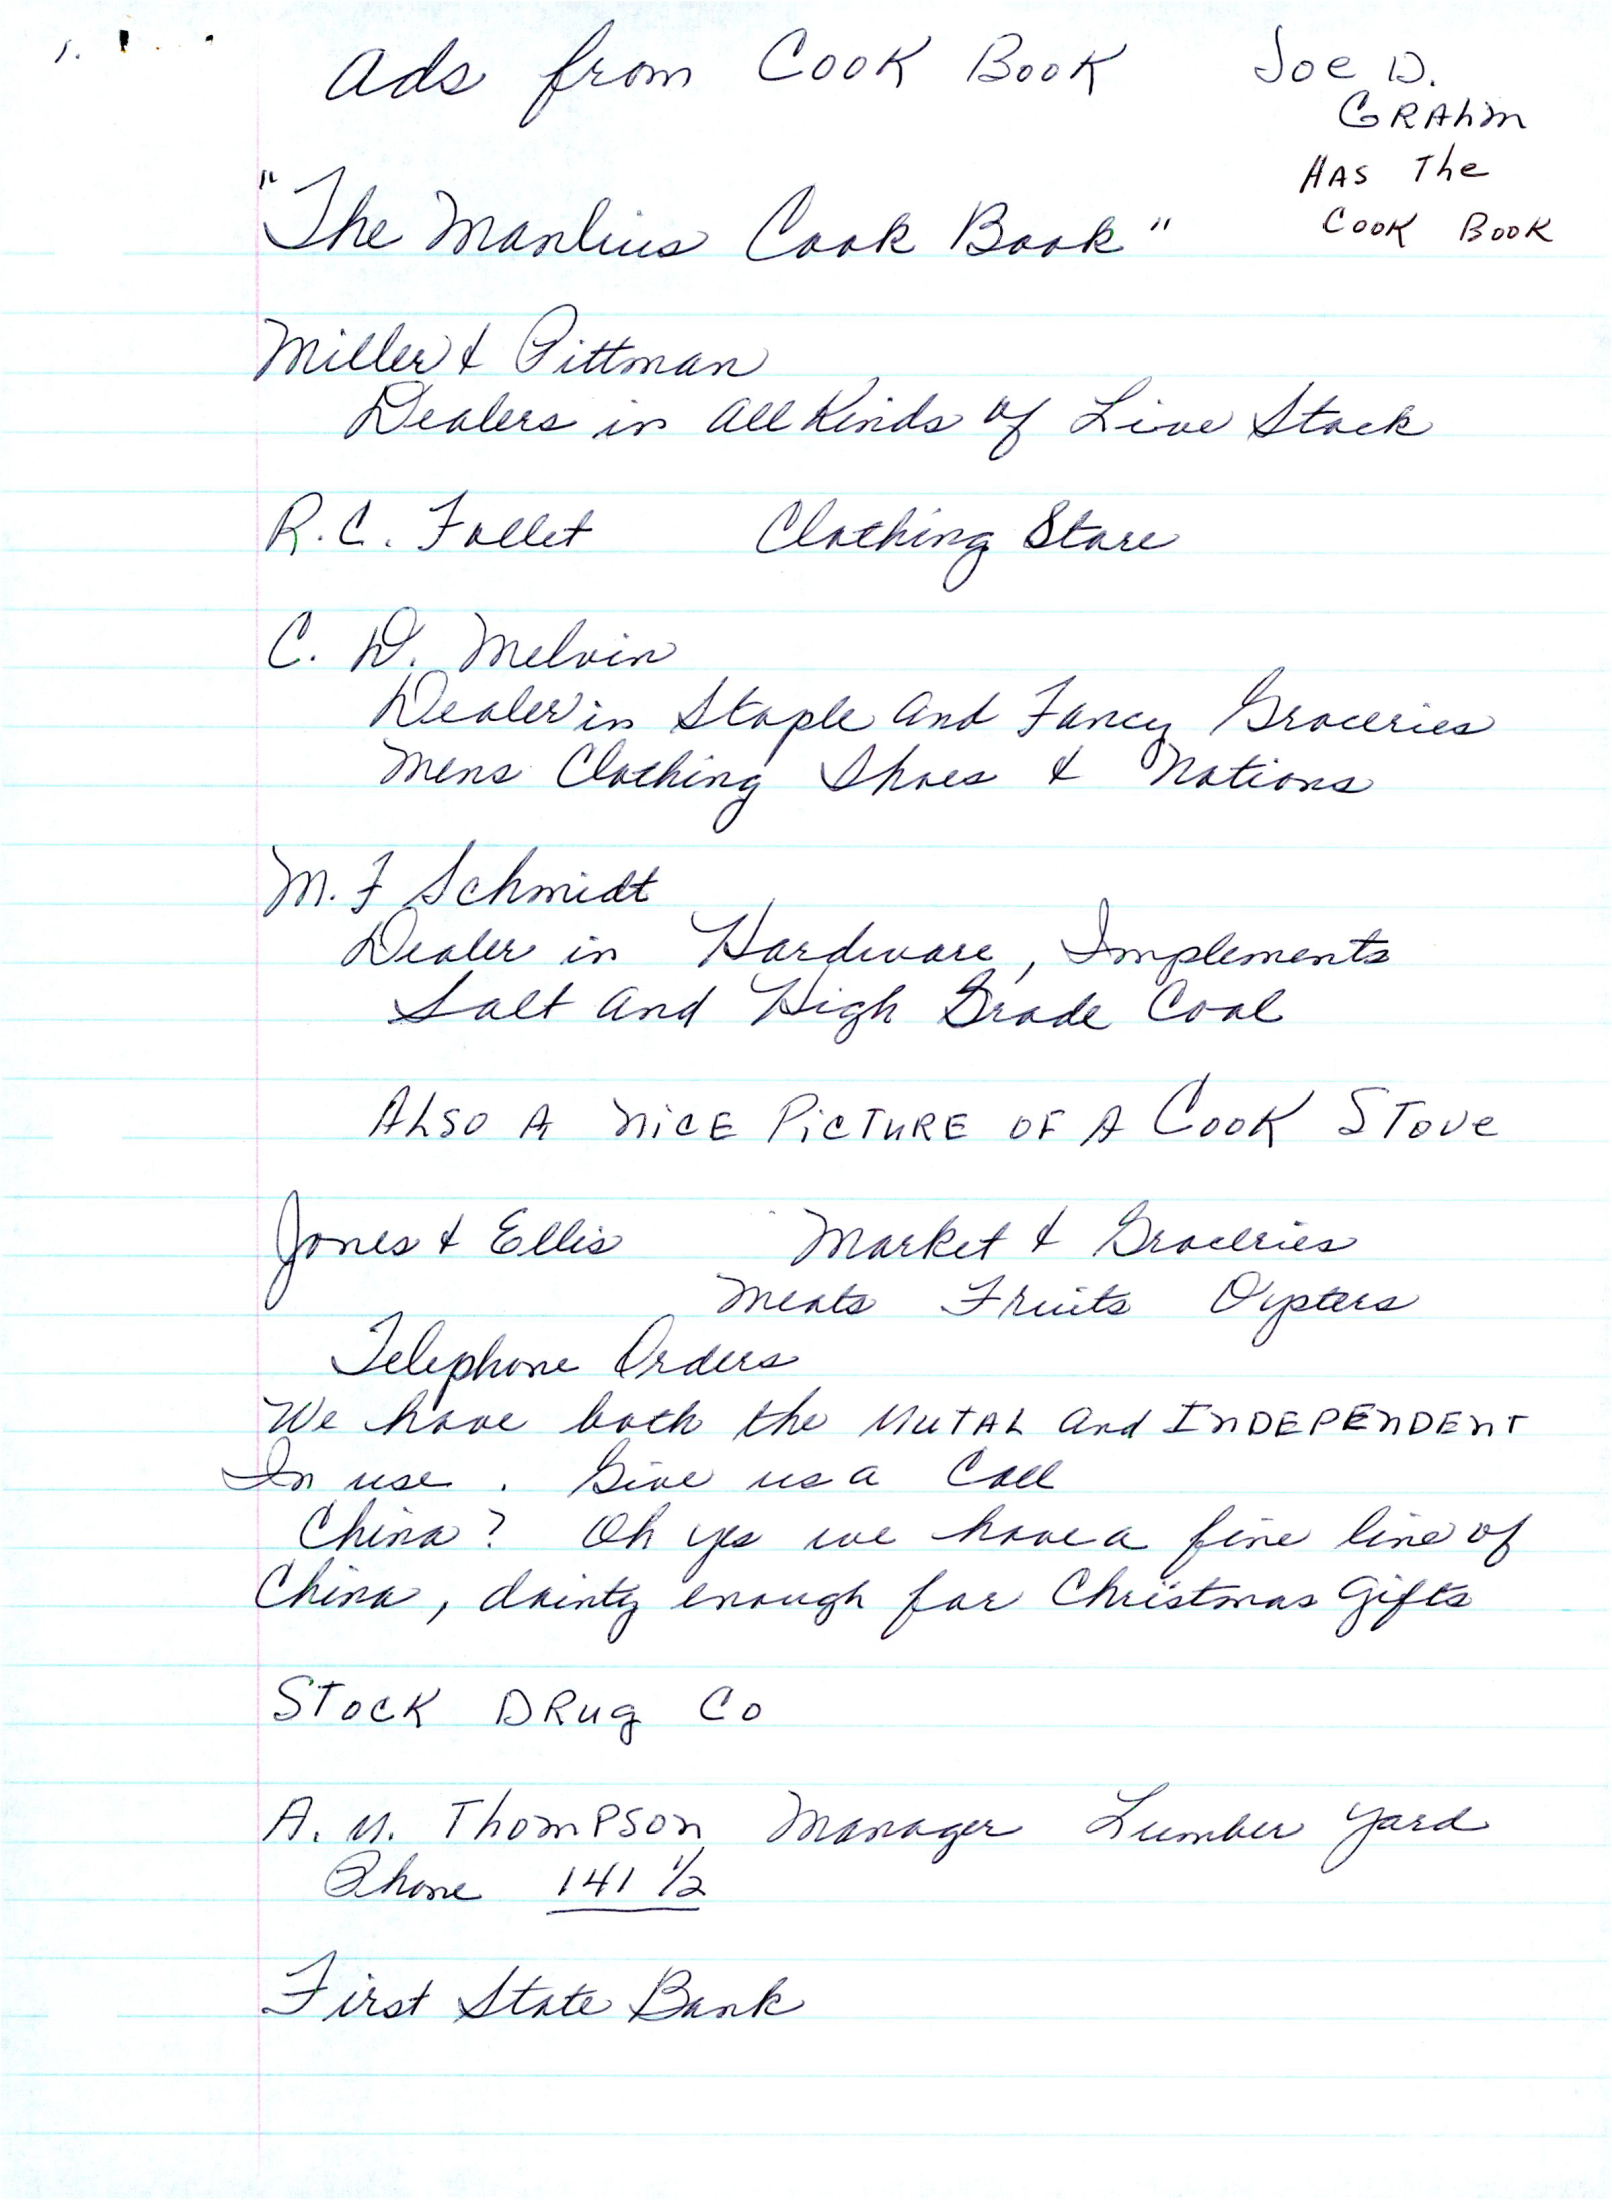 1.
Ads from Cook Book
Joe D.
GRAhm
HAS The
COOK BOOK
"The Manlius Cook Book"
Miller & Pittman
Dealers in all Kinds of Live Stock
R.C. Follet Clothing Store
C. D. Melvin
Dealer in Staple and Fancy Groceries
Mens Clothing Shoes & Notions
M. F Schmidt
Dealer in Hardware, Implements
Salt and High Grade Coal
ALSO A NICE PICTURE OF A COOK STOVE
Jones & Ellis Market & Groceries
Meats Fruits Oysters
Telephone Orders
We have both the MUTAL and INDEPENDENT
In use. Give us a Call
China? Oh yes we have a fine line of
China, dainty enough for Christmas Gifts
STOCK DRug Co
A. M. ThomPSon Manager Lumber Yard
Phone 141 1/2
First State Bank